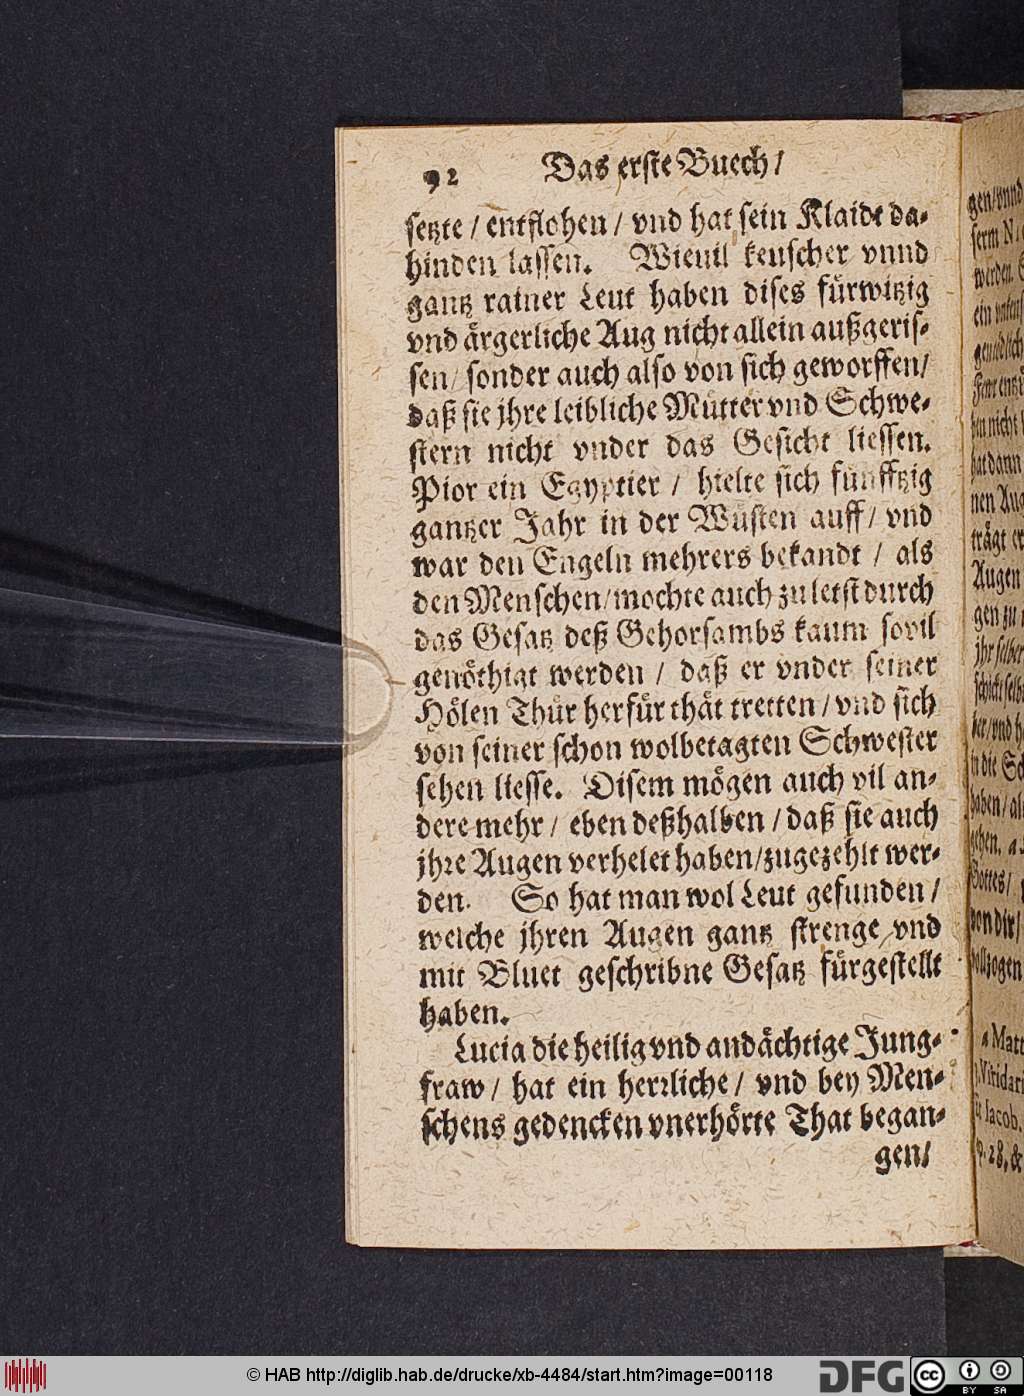 92 Das erste Buech /
setzte / entflohen / vnd hat sein Klaidt da-
hinden lassen. Wieuil keuscher vnnd
gantz rainer Leut haben dises fürwitzig
vnd ärgerliche Aug nicht allein außgeris-
sen / sonder auch also von sich geworffen /
daß sie jhre leibliche Mütter vnd Schwe-
stern nicht vnder das Gesicht liessen.
Pior ein Egyptier / hielte sich fünfftzig
gantzer Jahr in der Wüsten auff / vnd
war den Engeln mehrers bekandt / als
den Menschen / mochte auch zu letst durch
das Gesatz deß Gehorsambs kaum sovil
genöthigt werden / daß er vnder seiner
Hölen Thür herfür thät tretten / vnd sich
von seiner schon wolbetagten Schwester
sehen liesse. Disem mögen auch vil an-
dere mehr / eben deßhalben / daß sie auch
jhre Augen verhelet haben / zugezehlt wer-
den. So hat man wol Leut gefunden /
welche jhren Augen gantz strenge / vnd
mit Bluet geschribne Gesatz fürgestellt
haben.
Lucia die heilig vnd andächtige Jung-
fraw / hat ein herrliche / vnd bey Men-
schens gedencken vnerhörte That began-
gen /
gen / vnnd
serm
werden.
Augen
gen zu
jhr selber
in die
haben / al
gehen. a
Gottes /
von dir /
vollzogen
a Matt
Viridari
Iacob.
28, &
© HAB http://diglib.hab.de/drucke/xb-4484/start.htm?image=00118
DFG
cc
BY SA